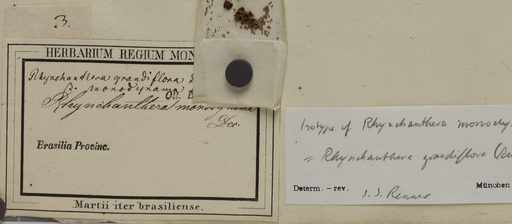 3.
HERBARIUM REGIUM MON
Rhynchanthera grandiflora
β. monodynama
Rhynchanthera monodynama
Dec.
Brasilia Provinc.
Martii iter brasiliense.
Isotype of Rhynchanthera monody
= Rhynchanthera grandiflora (
Determ. – rev.
S. S. Renner
München